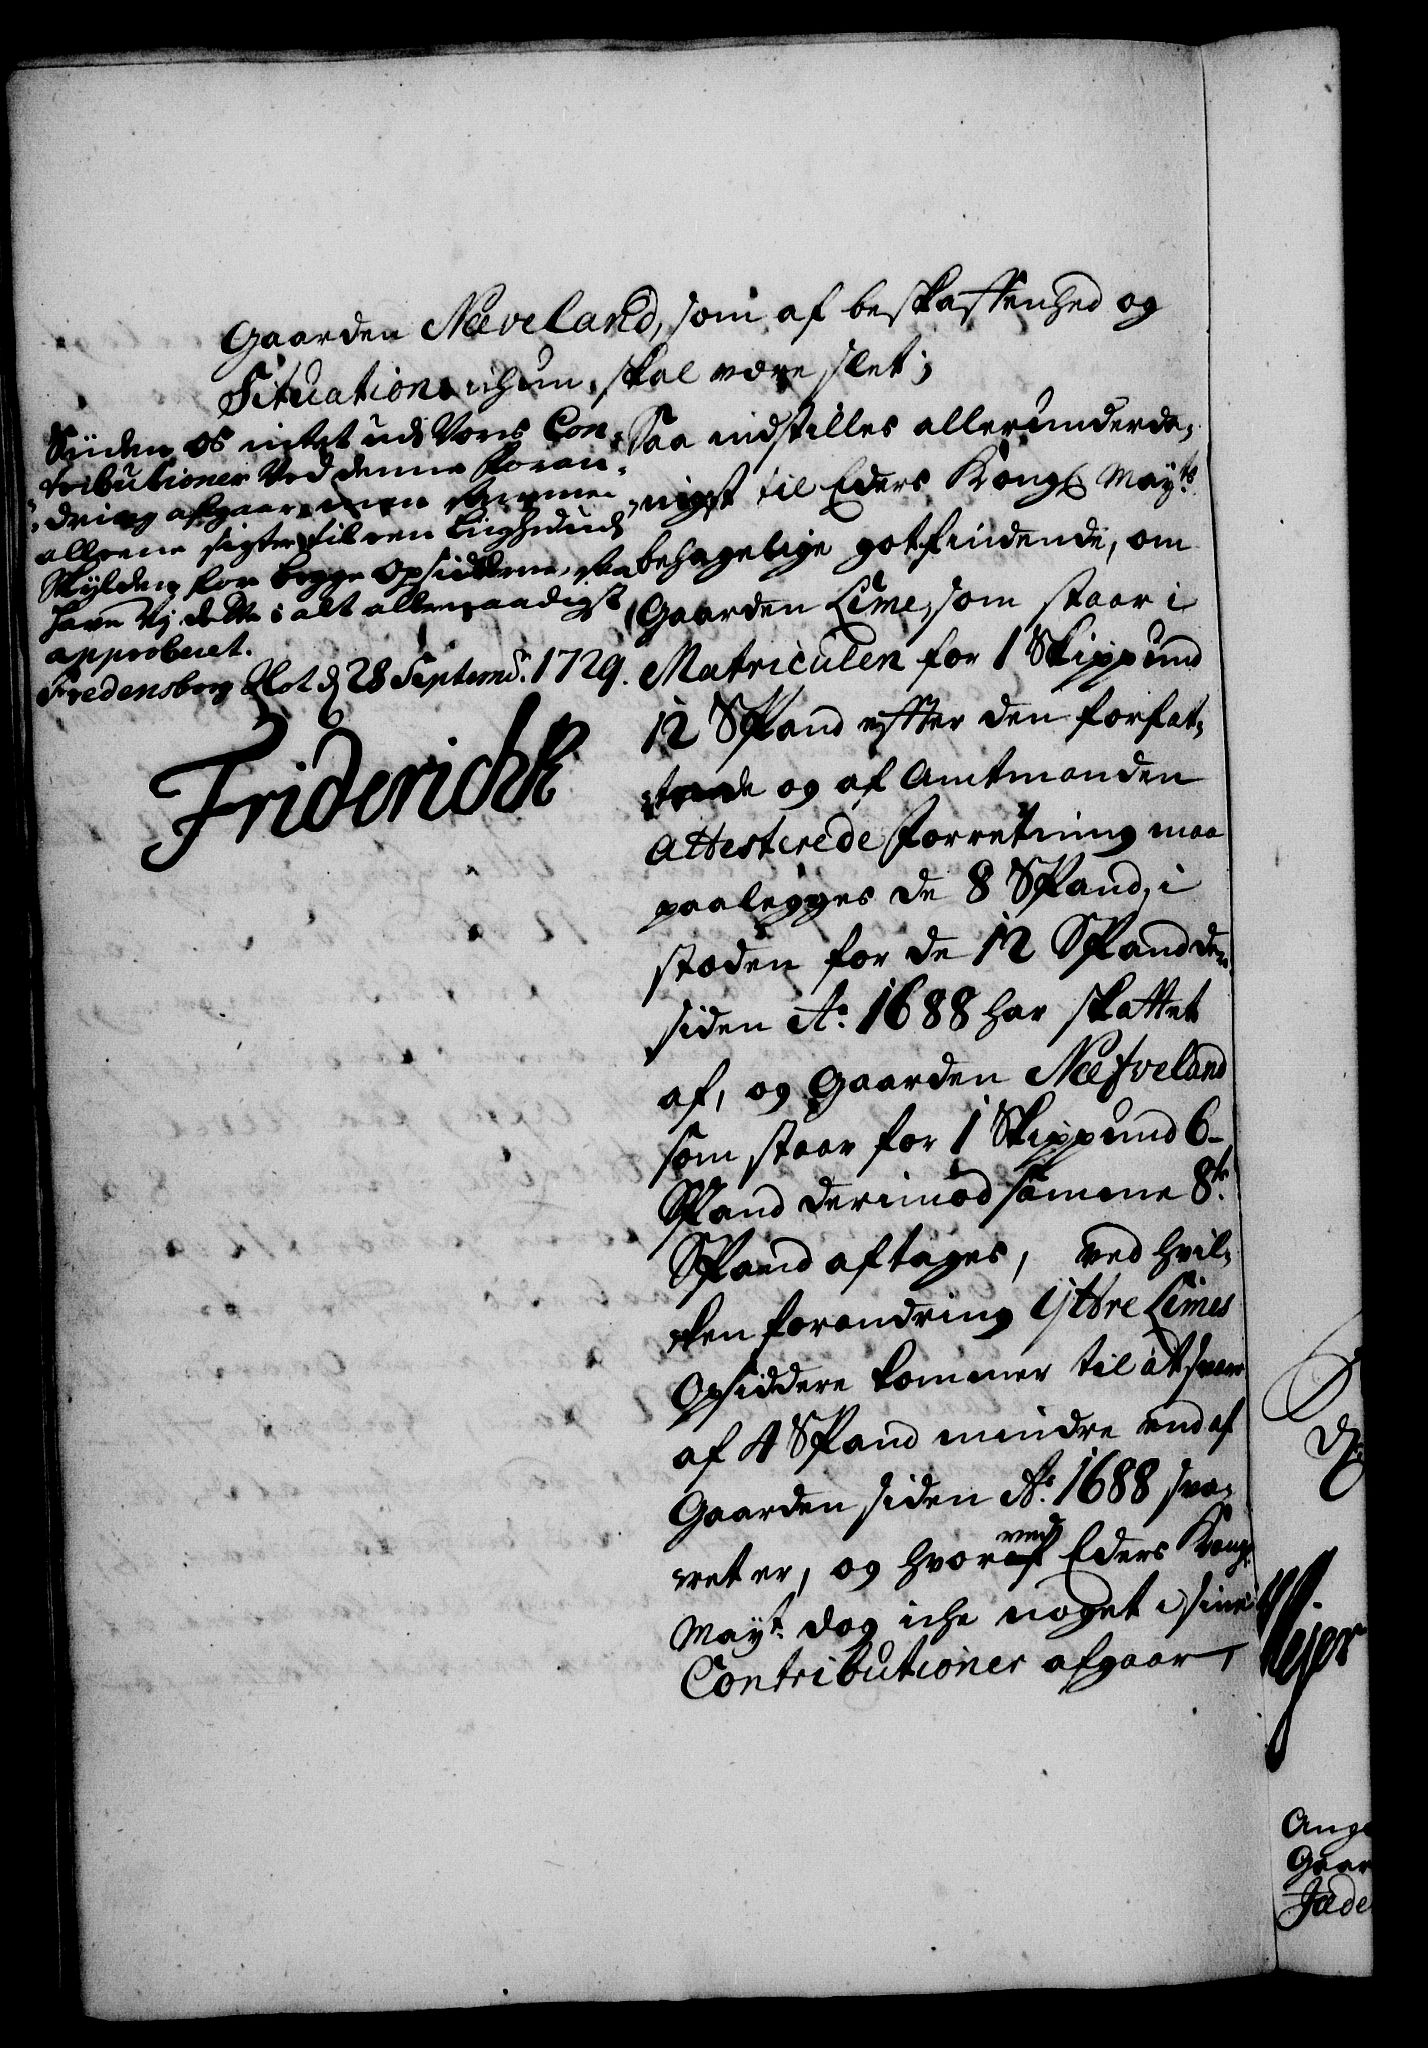 Gaarden Næveland, som af beskaffenhed og
Situation ichun skal være slet;
Saa indstilles allerunderda-
nigst til Eders Kongl Mayts
behagelige gotfindende, om
Gaarden Lime, som staar i
Matriculen for 1 Skippund
12 Spand effter den forfat-
tede og af Amtmanden
Attesterede forretning maa
paalegges de 8 Spand, i
stæden for de 12 Spand den
siden Ao. 1688 har skattet
af, og Gaarden Næfveland
som staar for 1 Skippund 6
Spand derimod samme 8te
Spand aftages, ved hvil-
ken forandring Yttre Limes
Opsiddere kommer til at svare
af 4 Spand mindre end af
Gaarden siden Ao. 1688 sva-
ret er, og hvorved Eders Kongl
Mayt. dog iche noget i sine
Contributioner afgaar,
Siiden os intet udi Vores Con-
tributioner Ved denne foran-
dring afgaar, men samme
alleene sigter til een Liighed udi
Skylden for begge Opsidderne, saa
have Vj dette i alt allernaadigst
approberet.
Fredensborg Slot d 28 Septembr. 1729.
Friderich R
Ange
Gaar
Jæde